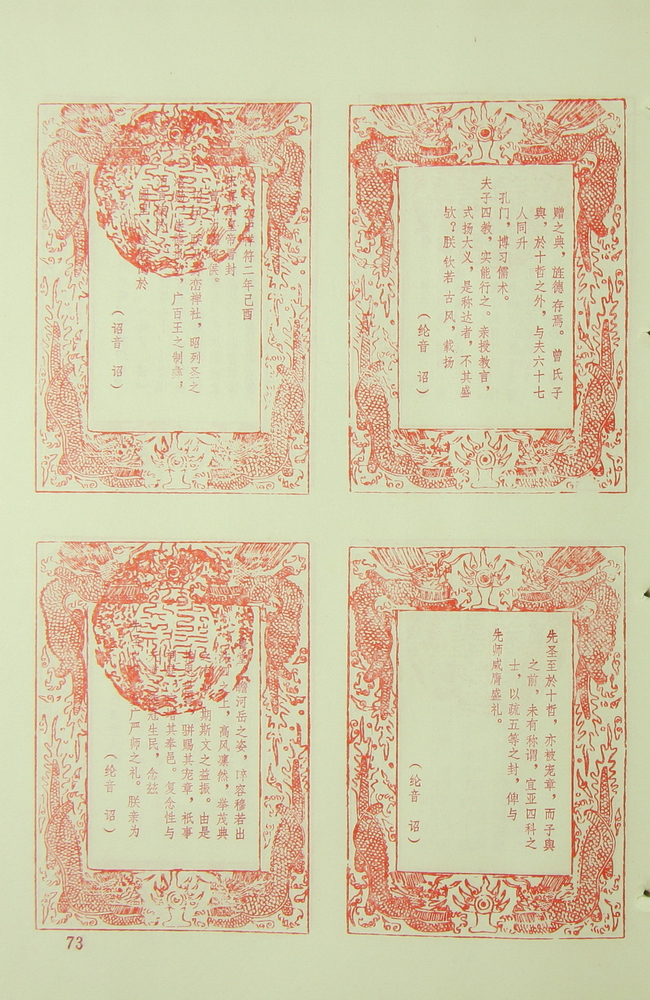 赠之典，旌德存焉。曾氏子
舆，於十哲之外，与夫六十七
人同升
孔门，博习儒术。
夫子四教，实能行之。亲授教言，
式扬大义，是称达者，不其盛
欤？朕钦若古风，载扬
（纶音 诏）
符二年己酉
帝
封
峦禅社，昭列圣之
广百王之制雍，
於
（诏音 诏）
先圣至於十哲，亦被宠章，而子舆
之前，未有称谓，宜亚四科之
士，以疏五等之封，俾与
先师咸膺盛礼。
（纶音 诏）
瞻河岳之姿，晬容穆若出
上，高风凛然，举茂典
期斯文之益振。由是
骈赐其宠章，祇事
其奉邑。复念性与
冠生民，念兹
严师之礼。朕亲为
（纶音 诏）
73